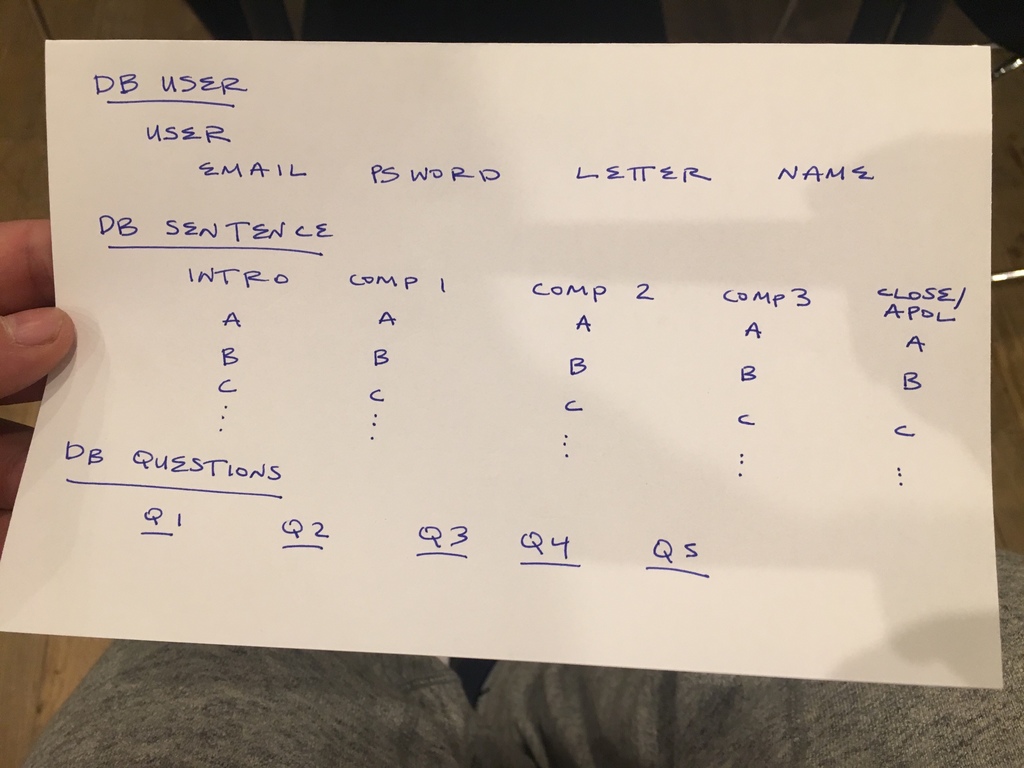 DB USER
USER
EMAIL PSWORD LETTER NAME
DB SENTENCE
INTRO COMP 1 COMP 2 COMP 3 CLOSE/
APOL
A A A A A
B B B B B
C C C C C
⋮ ⋮ ⋮ ⋮ ⋮
DB QUESTIONS
Q1 Q2 Q3 Q4 Q5